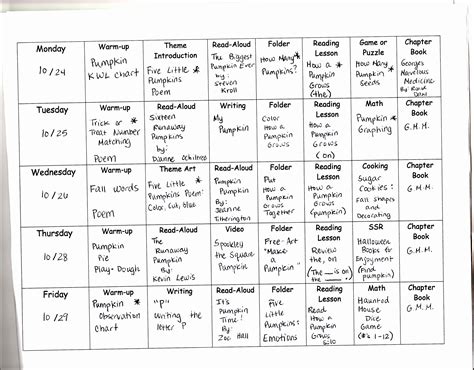 Monday
10/24
Warm-up
Pumpkin
KWL Chart
Theme
Introduction
Five Little *
Pumpkins
Poem
Read-Aloud
The Biggest
Pumpkin Ever
by:
Steven
Kroll
Folder
How Many *
Pumpkins?
Reading
Lesson
How a
Pumpkin
Grows
(the)
Game or
Puzzle
How Many *
Pumpkin
Seeds
Chapter
Book
Georges
Marvelous
Medicine
By: Roald
Dahl
Tuesday
10/25
Warm-up
Trick or *
Treat Number
Matching
Poem
Read-Aloud
Sixteen
Runaway
Pumpkins
by:
Dianne Ochiltree
Writing
My *
Pumpkin
Folder
Color
How a
Pumpkin
Grows
Reading
Lesson
How a
Pumpkin
Grows
(on)
Math
Pumpkin *
Graphing
Chapter
Book
G.M.M.
Wednesday
10/26
Warm-up
Fall Words
Poem
Theme Art
Five Little *
Pumpkins Poem:
Color, Cut, Glue
Read-Aloud
Pumpkin
Pumpkin
by:
Jeanne
Titherington
Folder
Put
How a
Pumpkin
Grows
Together
Reading
Lesson
How a
Pumpkin
Grows
(is)
Cooking
Sugar
Cookies:
Fall shapes
and
Decorating
Chapter
Book
G.M.M.
Thursday
10/28
Warm-up
Pumpkin
Pie
Play-Dough
Read-Aloud
The
Runaway
Pumpkin
by:
Kevin Lewis
Video
Spookley
the Square
Pumpkin
Folder
Free-Art
"Make
a
Pumpkin"
Reading
Lesson
Review
the, on
(The __ is on
the __.)
SSR
Halloween
Books for
Enjoyment
(Find
pumpkin)
Chapter
Book
G.M.M.
Friday
10/29
Warm-up
Pumpkin *
Observation
Chart
Writing
"p"
Writing the
letter P
Read-Aloud
It's
Pumpkin
Time!
by:
Zoe Hall
Folder
Five
Little
Pumpkins:
Emotions
Reading
Lesson
Read
How a
Pumpkin
Grows
Math
Haunted
House
Dice
Game
(#'s 1-12)
Chapter
Book
G.M.M.